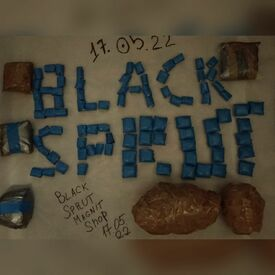 17.05.22
BLACK
SPRUT
BLACK
SPRUT
MAGNIT
SHOP
17 05
22